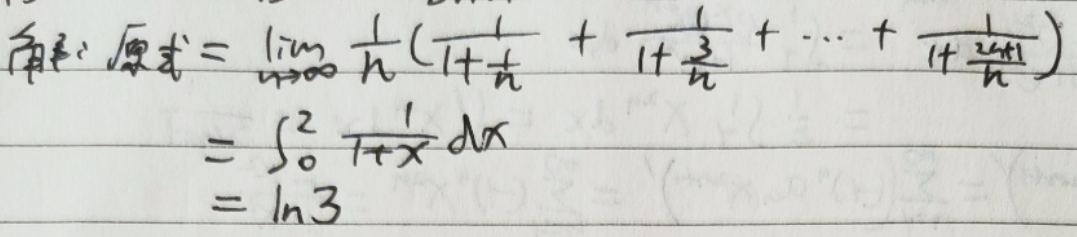 解: 原式 = lim_{n→∞} \frac{1}{n} ( \frac{1}{1+\frac{1}{n}} + \frac{1}{1+\frac{3}{n}} + ⋯ + \frac{1}{1+\frac{2n+1}{n}} )
= ∫_0^2 \frac{1}{1+x} dx
= ln3